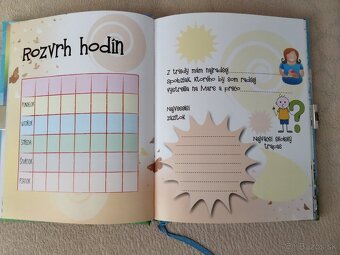 Rozvrh hodín
PONDELOK
UTOROK
STREDA
ŠTVRTOK
PIATOK
Z triedy mám najradšej
spolužiak, ktorého by som radšej
vystrelila na Mars a prečo
Najveselší
zážitok
?
Najväčší školský
trapas
Bazos.sk